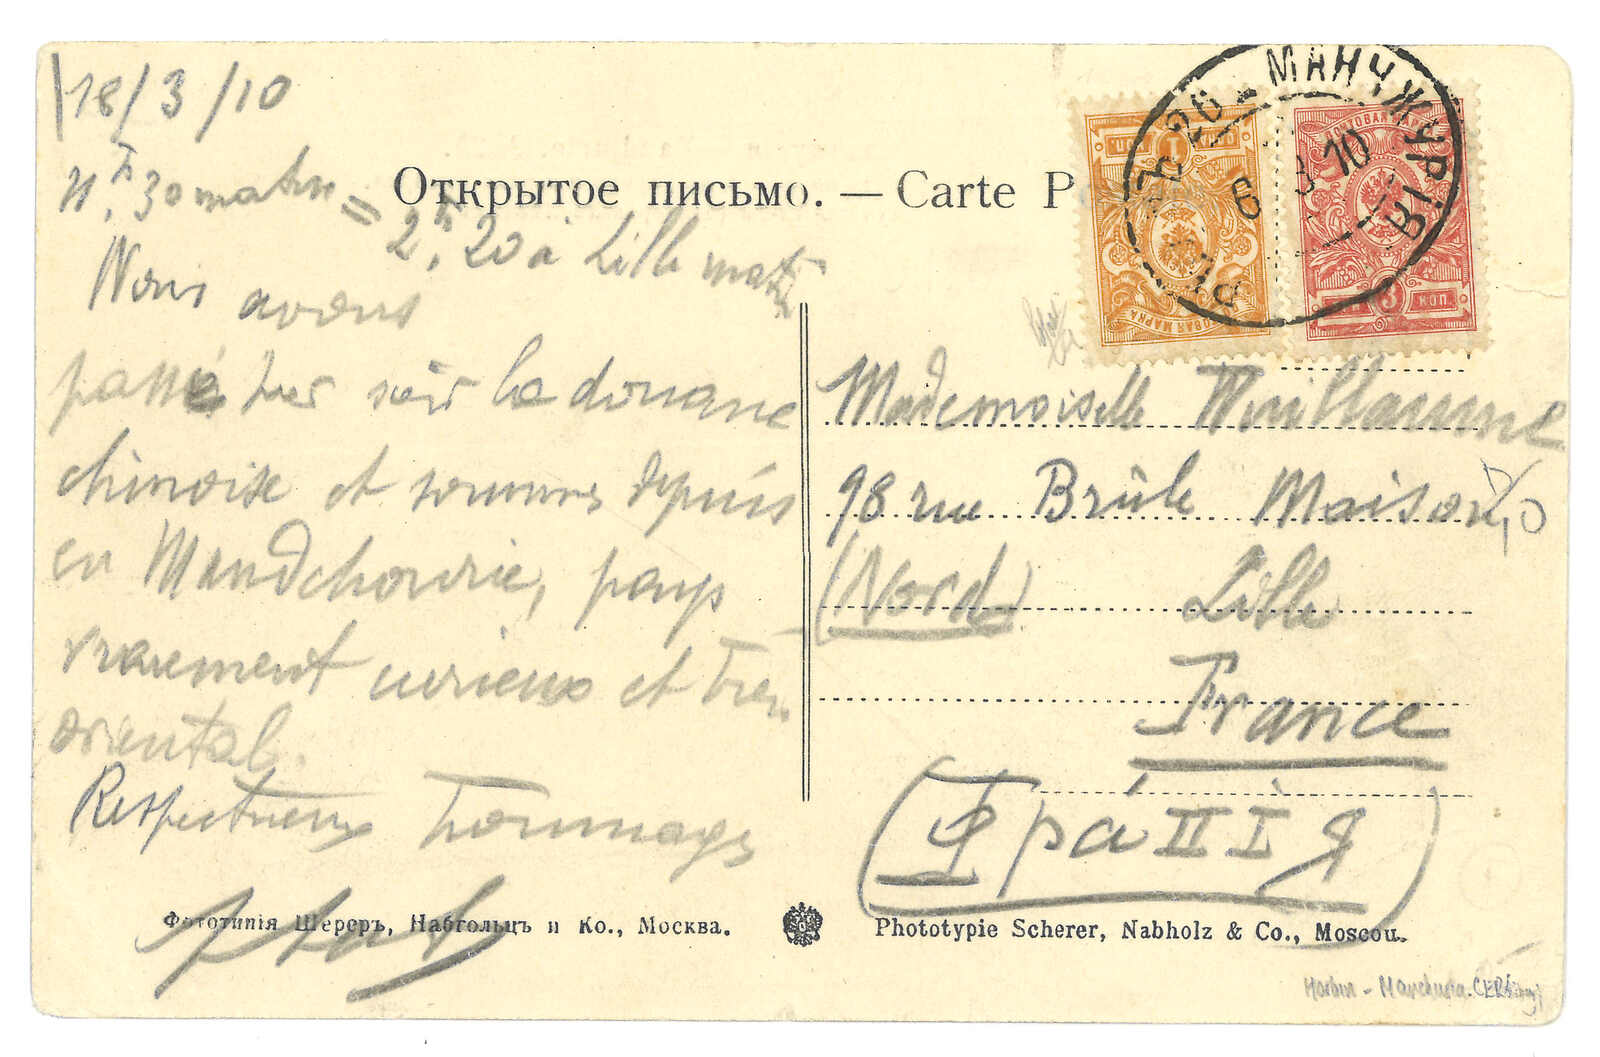 18/3/10
Открытое письмо. — Carte P
h. 30 matin = 2h. 20 à Lille matin
Nous avons
passé hier soir la douane
chinoise et sommes depuis
en Mandchourie, pays
vraiment curieux et très
oriental.
Respectueux hommages
Mademoiselle Wuillaume
98 rue Brûle Maison
(Nord) Lille
France
(Фра II I Я)
МАНЧЖУРІЯ
6 3 10
1 КОП
3 КОП
ПОЧТОВАЯ МАРКА
Фототипія Шереръ, Набгольцъ и Ко., Москва.
Phototypie Scherer, Nabholz & Co., Moscou.
Harbin - Manchuria.